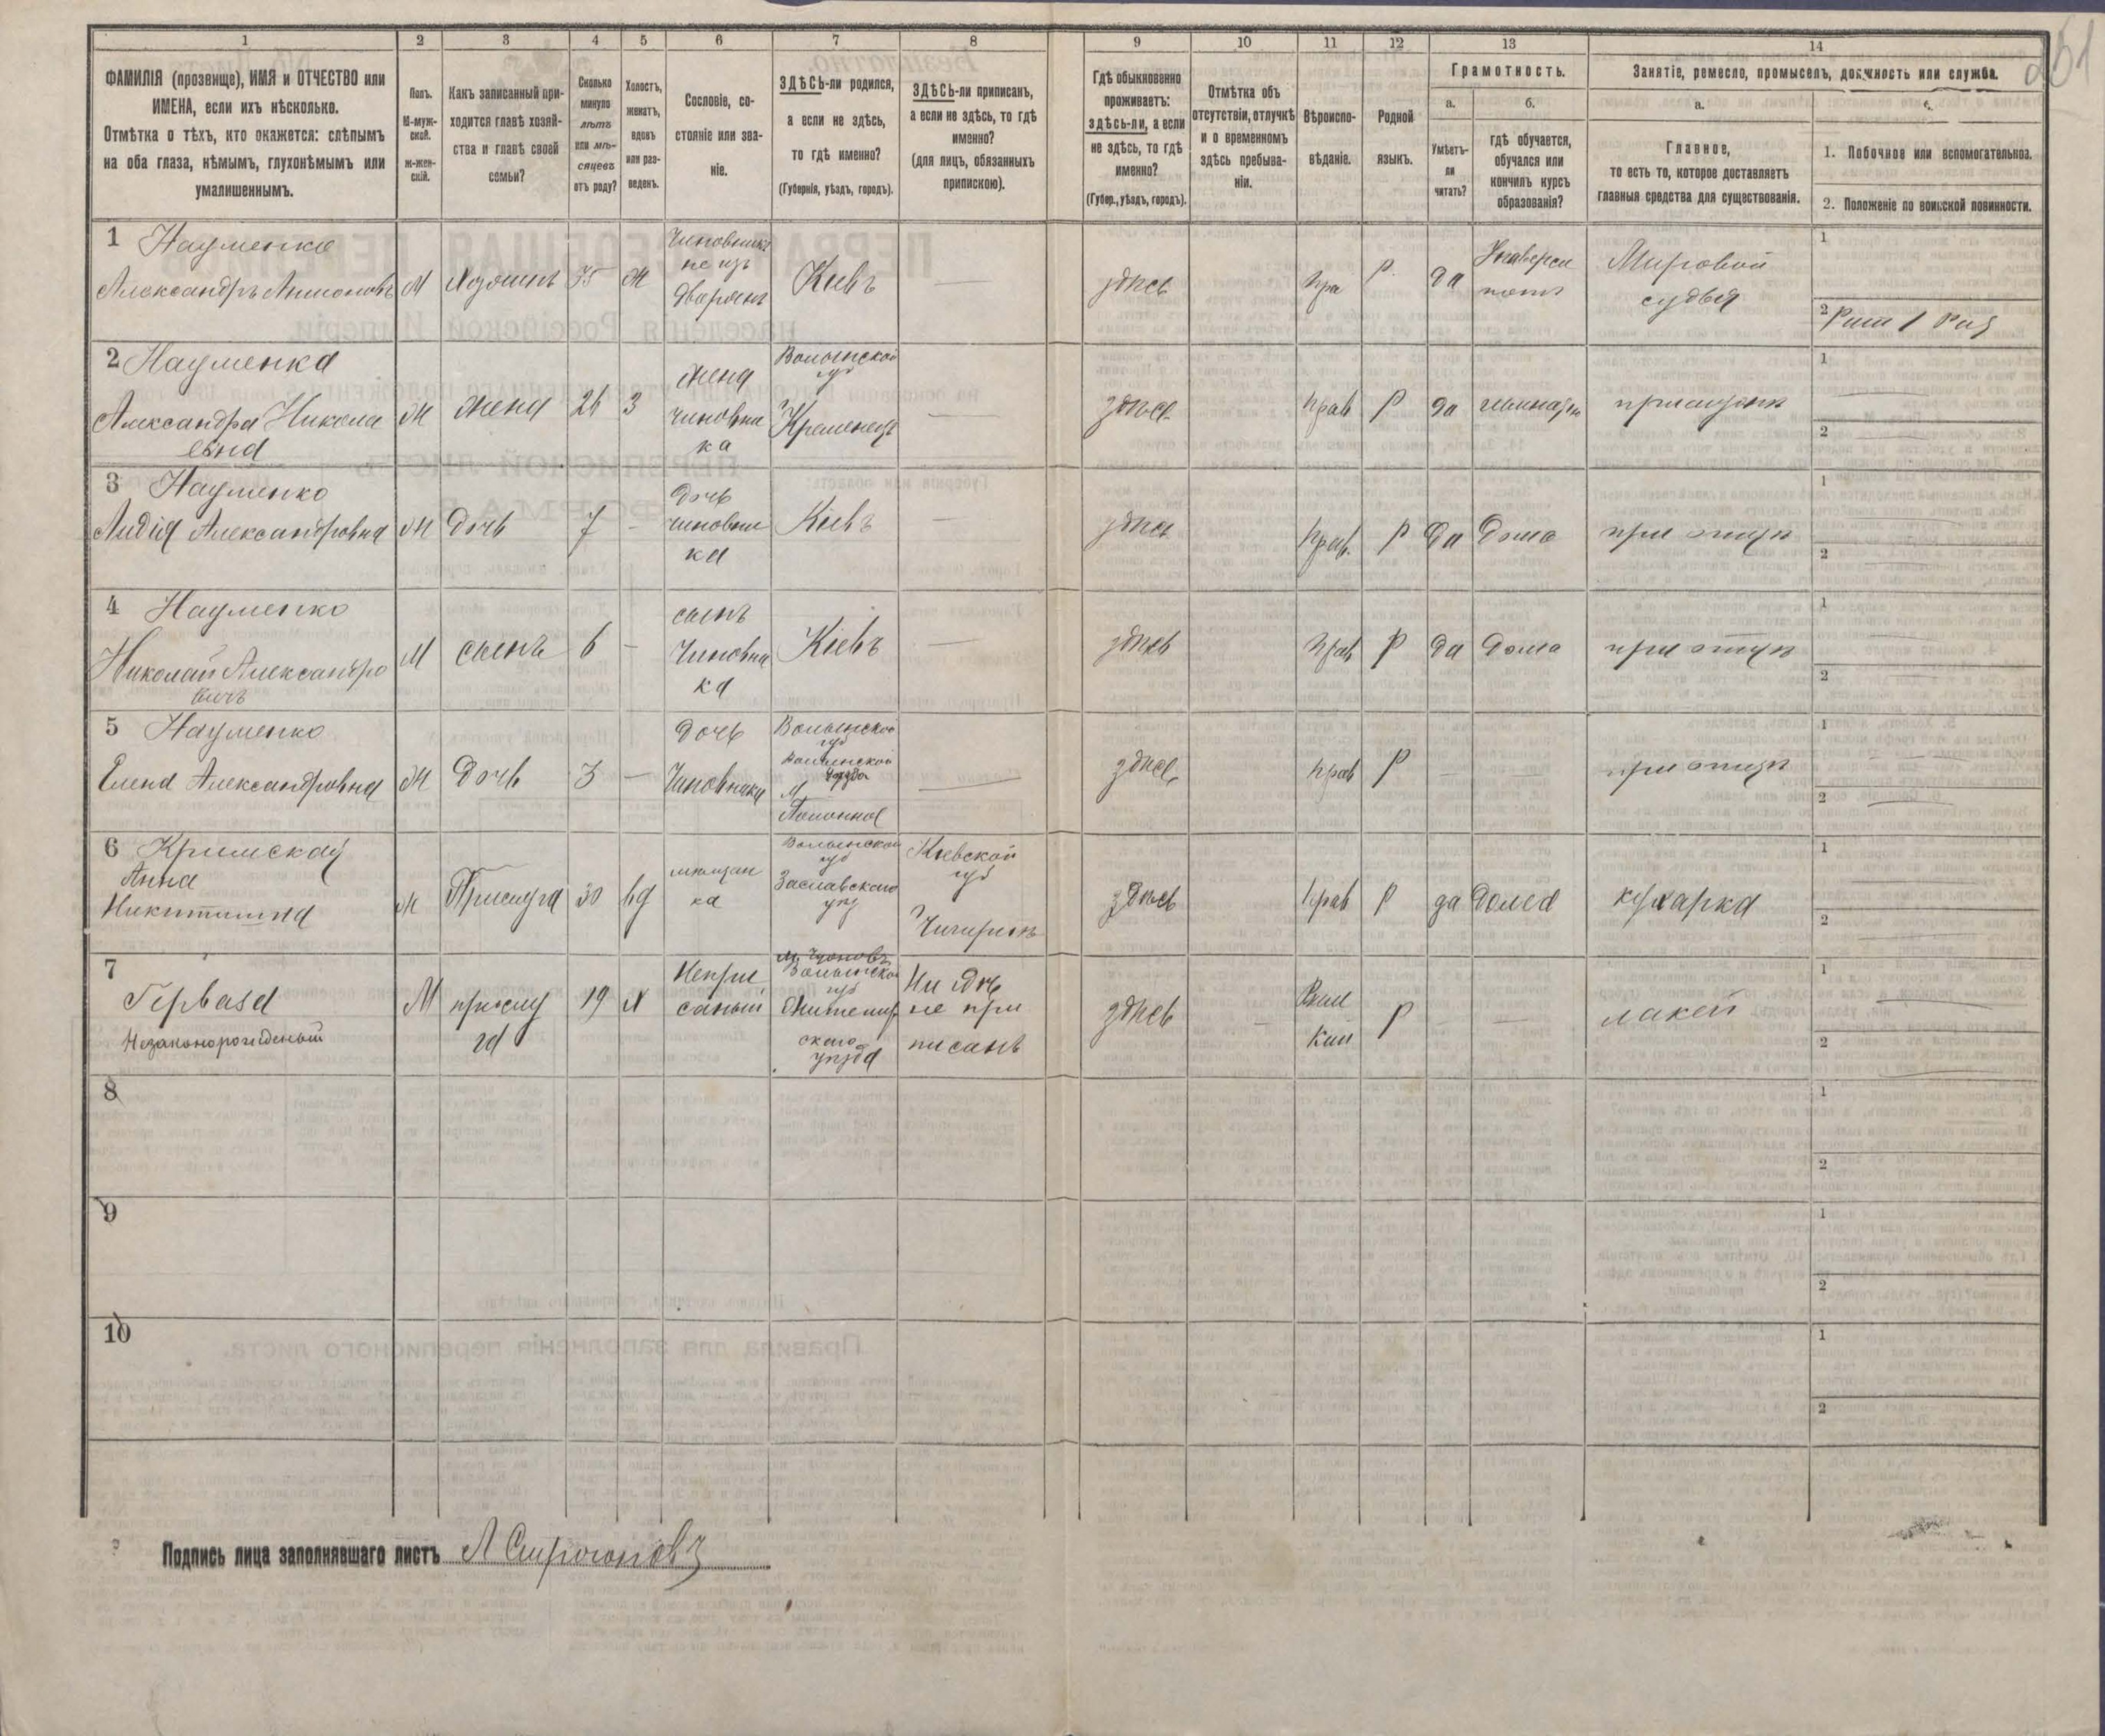 261
1 2 3 4 5 6 7 8 9 10 11 12 13 14
ФАМИЛІЯ (прозвище), ИМЯ и ОТЧЕСТВО или
ИМЕНА, если ихъ нѣсколько.
Отмѣтка о тѣхъ, кто окажется: слѣпымъ
на оба глаза, нѣмымъ, глухонѣмымъ или
умалишеннымъ.
Полъ.
М-муж-
ской.
Ж-жен-
скій.
Какъ записанный при-
ходится главѣ хозяй-
ства и главѣ своей
семьи?
Сколько
минуло
лѣтъ
или мѣ-
сяцевъ
отъ роду?
Холостъ,
женатъ,
вдовъ
или раз-
веденъ.
Сословіе, со-
стояніе или зва-
ніе.
ЗДѢСЬ-ли родился,
а если не здѣсь,
то гдѣ именно?
(Губернія, уѣздъ, городъ).
ЗДѢСЬ-ли приписанъ,
а если не здѣсь, то гдѣ
именно?
(для лицъ, обязанныхъ
припискою).
Гдѣ обыкновенно
проживаетъ:
здѣсь-ли, а если
не здѣсь, то гдѣ
именно?
(Губер., уѣздъ, городъ).
Отмѣтка объ
отсутствіи, отлучкѣ
и о временномъ
здѣсь пребыва-
ніи.
Вѣроиспо-
вѣданіе.
Родной
языкъ.
Грамотность.
а.
Умѣетъ-
ли
читать?
б.
гдѣ обучается,
обучался или
кончилъ курсъ
образованія?
Занятіе, ремесло, промыселъ, должность или служба.
а.
Главное,
то есть то, которое доставляетъ
главныя средства для существованія.
1. Побочное или вспомогательное.
2. Положеніе по воинской повинности.
1 Науменко
Александръ Антоновъ
М
Хозяинъ
35
Ж
Чиновникъ
не изъ
дворянъ
Кіевъ
здѣсь
пра
Р.
да
Университетъ
Мировой
судья
1
2
2 Науменка
Александра Никола
евна
Ж
жена
26
З
жена
чиновни
ка
Волынской
губ
Кременецъ
здѣсь
прав
Р
да
1
2
3 Науменко
Лидія Александровна
Ж
Дочь
7
Дочь
чиновни
ка
Кіевъ
здѣсь
прав.
Р
Да
Дома
при отцѣ
1
2
4 Науменко
Николай Александро
вичъ
М
сынъ
6
сынъ
Чиновни
ка
Кіевъ
здѣсь
прав
Р
да
Дома
при отцѣ
1
2
5 Науменко
Елена Александровна
Ж
Дочь
3
Дочь
Чиновника
Волынской
губ
Волынской
уѣзда
м
Полонное
здѣсь
прав
Р
при отцѣ
1
2
6 Кримская
Анна
Никитишна
Ж
Прислуга
30
вд
мѣщан
ка
Волынской
губ
Заславского
уѣз
Кіевской
губ
Чигиринъ
здѣсь
прав
Р
да
Дома
кухарка
1
2
7
Герваsа
Незаконорожденый
М
прислу
га
19
Х
Непри
саный
Волынской
губ
Житомир
скаго
уѣзда
Ни гдѣ
не при
писанъ
здѣсь
Рим
кат
Р
лакей
1
2
8
1
2
9
1
2
10
1
2
Подпись лица заполнявшаго листъ